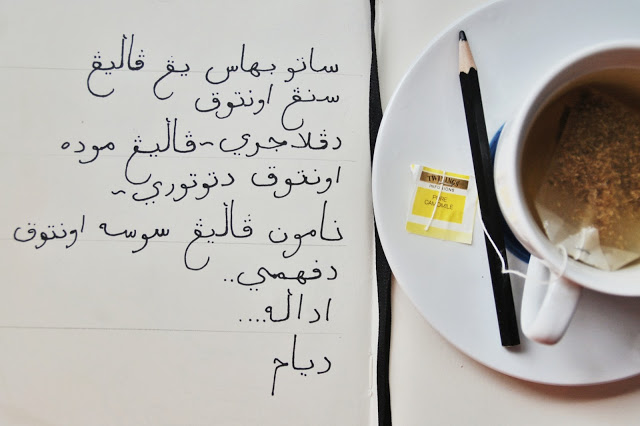 ساتو بهاس يڠ ڤاليڠ
سنڠ اونتوق
دڤلاجري~ڤاليڠ موده
اونتوق دتوتوري~
نامون ڤاليڠ سوسه اونتوق
دفهمي..
اداله....
ديام
TWININGS
INFUSIONS
PURE
CAMOMILE